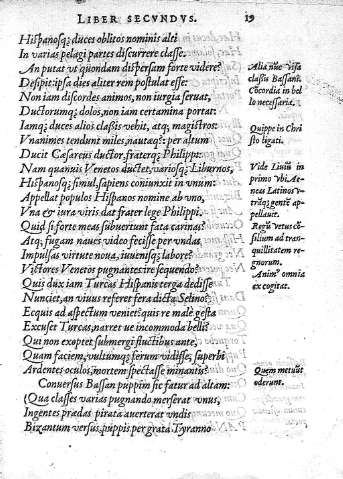 LIBER SECVNDVS. 19
Hispanosq; duces oblitos nominis alti
In varias pelagi partes discurrere classe.
An putat vt quondam dispersam forte videre?
Desipit: ipsa dies aliter rem postulat esse:
Non iam discordes animos, non iurgia seruat,
Ductorumq; dolos, non iam certamina portat:
Iamq; duces alios classis vehit, atq; magistros:
Vnanimes tendunt miles, nautaeq́;: per altum
Ducit Caesareus ductor, fraterq; Philippi:
Nam quanuis Venetos ductet, variosq; Liburnos,
Hispanosq; simul, sapiens coniunxit in vnum:
Appellat populos Hispanos nomine ab vno,
Vna & iura viris dat frater lege Philippi.
Quid si forte meas subuertunt fata carinas?
Atq; fugam naues video fecisse per vndas
Impulsas virtute noua, iuuenisq; labore?
Victores Venetos pugnantes ire sequendo?
Quis dux iam Turcas Hispanis terga dedisse
Nunciet, an viuus referet fera dicta Selino?
Ecquis ad aspectum veniet? quis re male gesta
Excuset Turcas, narret ue incommoda belli?
Qui non exoptet submergi fluctibus ante,
Quam faciem, vultumq; ferum vidisse, superbi
Ardentes oculos, mortem spectasse minantis?
Conuersus Bassan puppim sic fatur ad altam:
(Qua classes varias pugnando merserat vnus,
Ingentes praedas pirata auerterat vndis
Bizantum versus, puppis per grata Tyranno
Alia nūc visa
classis Bassani.
Cōcordia in bel
lo necessaria.
Quippe in Chri
sto ligati.
Vide Liuiū in
primo vbi Ae-
neas Latinos v-
trosq; gentē ap-
pellauit.
Regū vetus cō-
silium ad tran-
quillitatem re-
gnorum.
Animº omnia
ex cogitat.
Quem metuūt
oderunt.